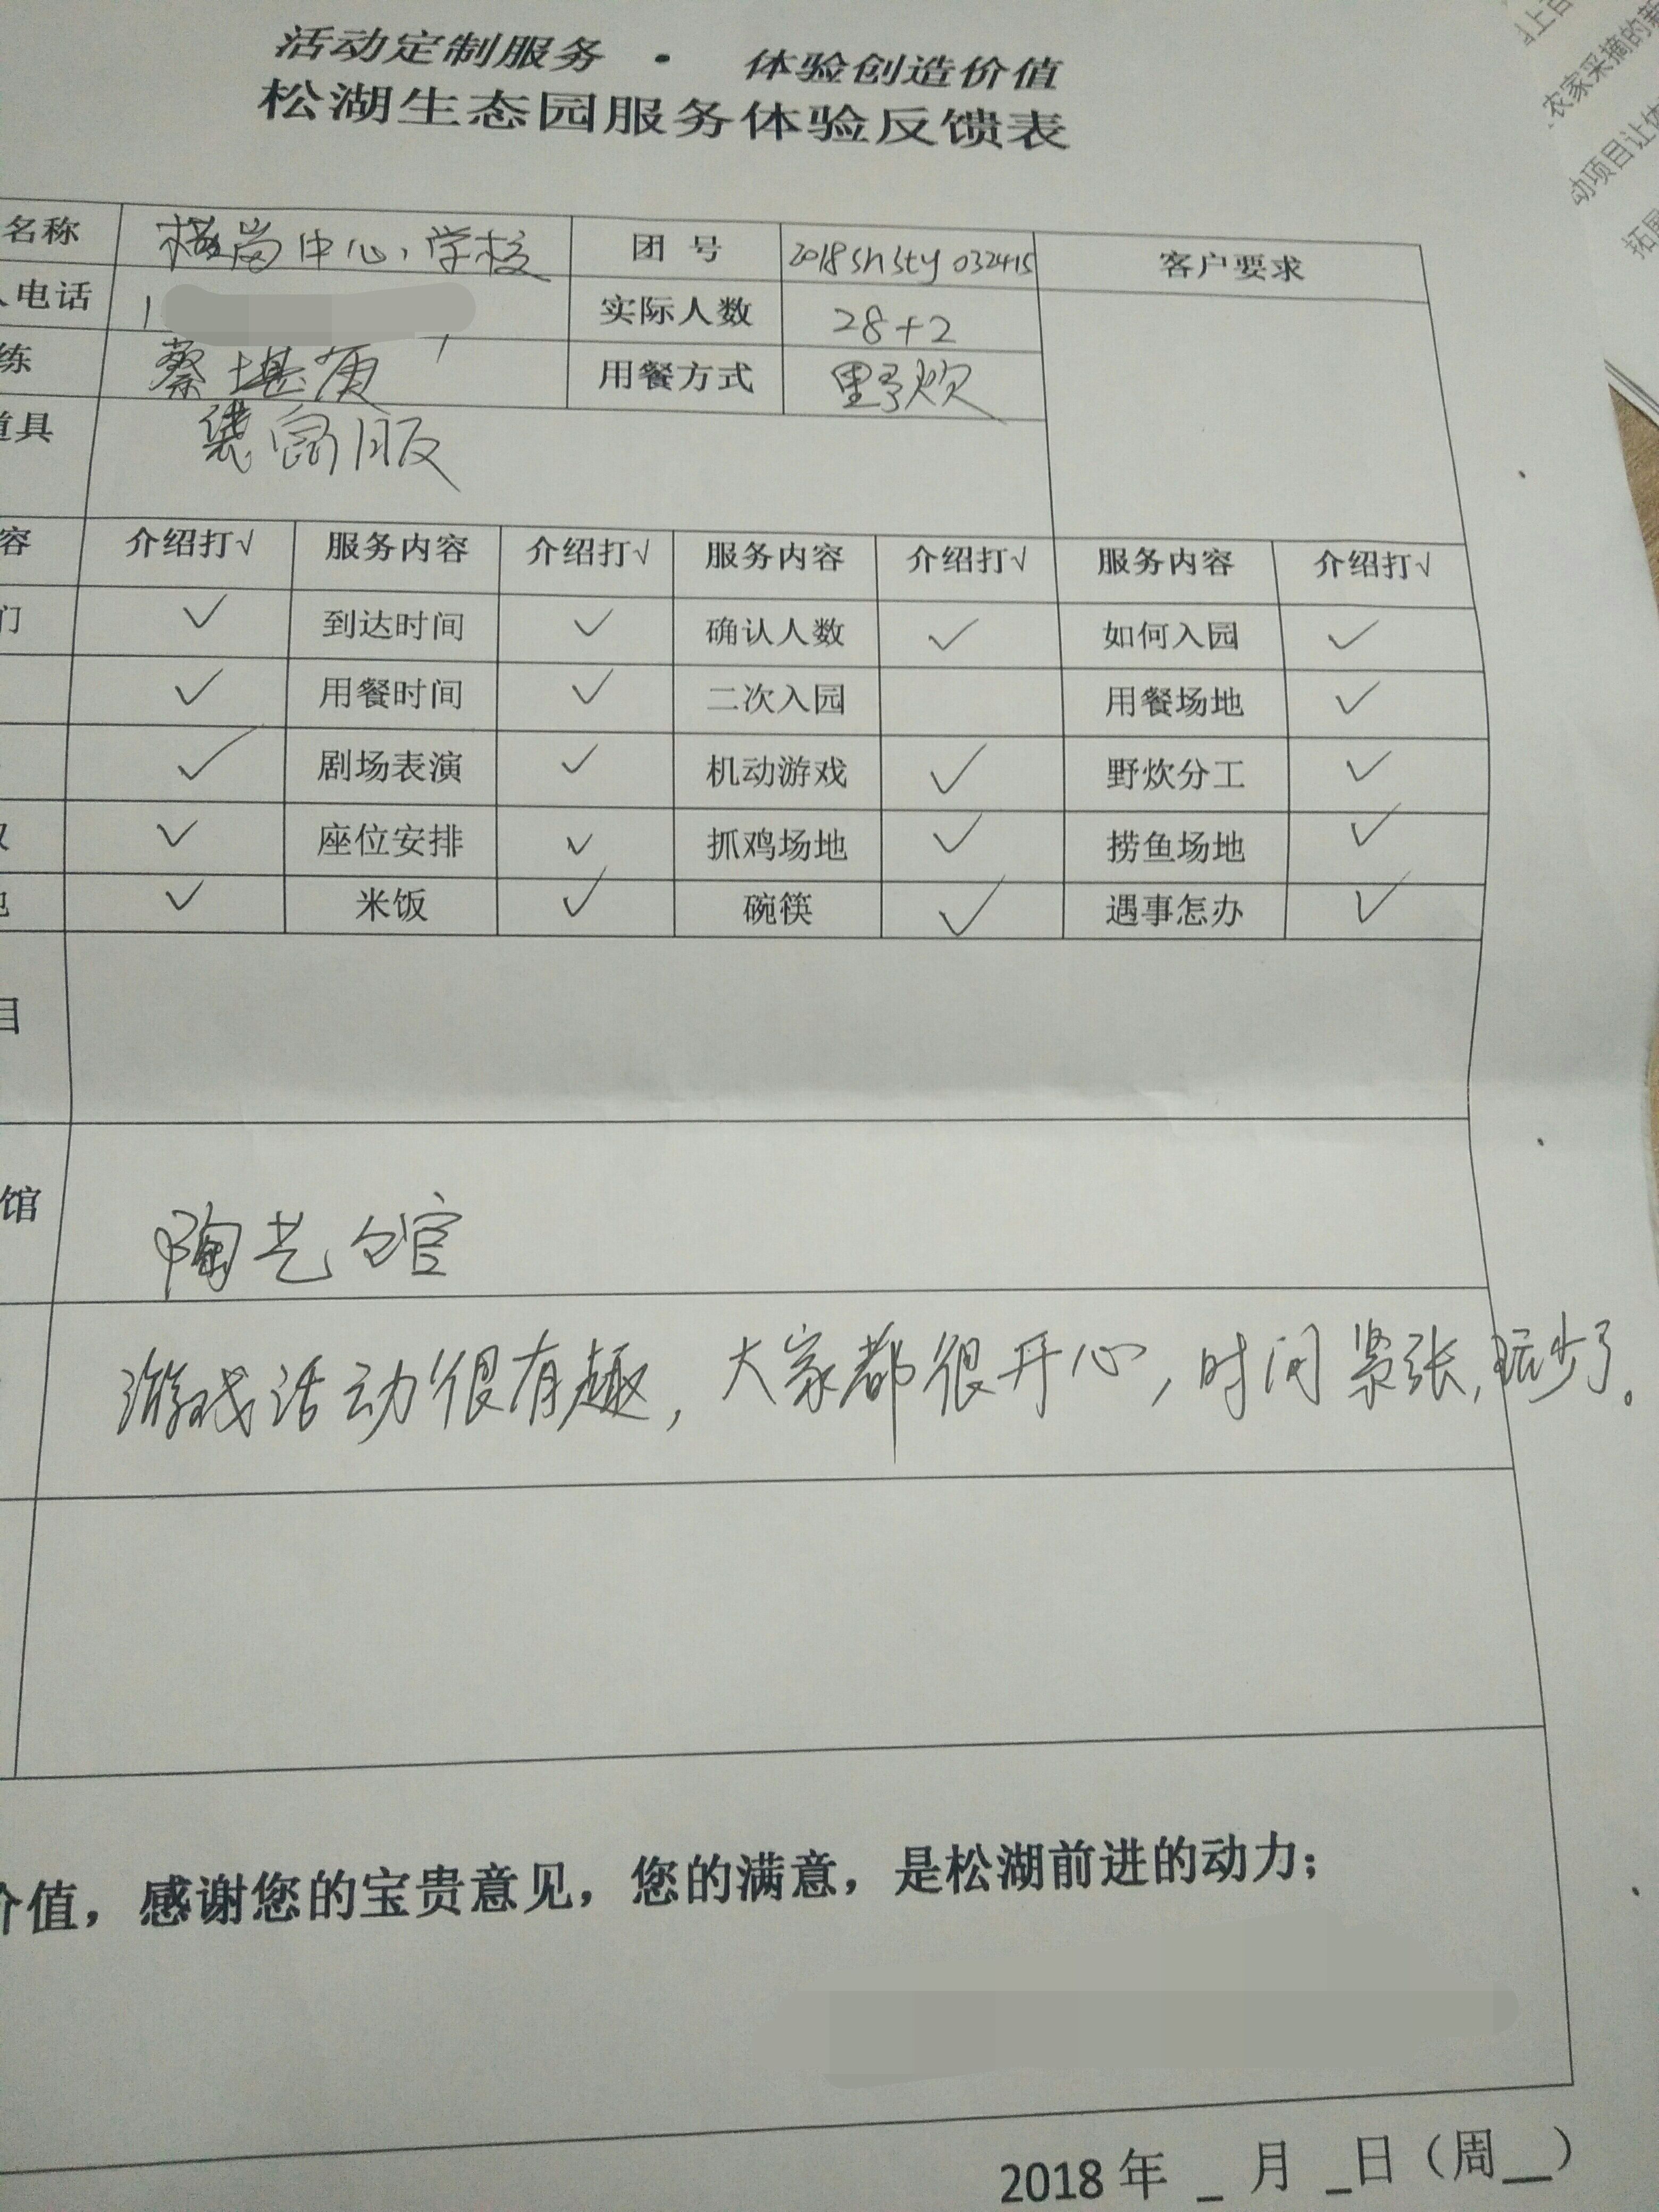 活动定制服务 · 体验创造价值
松湖生态园服务体验反馈表
名称 横岗中心学校 团 号 2018shsty032415 客户要求
人电话 1 实际人数 28+2
练 蔡堪 用餐方式 野炊
道具 袋 服
容 介绍打√ 服务内容 介绍打√ 服务内容 介绍打√ 服务内容 介绍打√
门 ✓ 到达时间 ✓ 确认人数 ✓ 如何入园 ✓
✓ 用餐时间 ✓ 二次入园 用餐场地 ✓
✓ 剧场表演 ✓ 机动游戏 ✓ 野炊分工 ✓
✓ 座位安排 ✓ 抓鸡场地 ✓ 捞鱼场地 ✓
✓ 米饭 ✓ 碗筷 ✓ 遇事怎办 ✓
目
馆 陶艺馆
游戏活动很有趣，大家都很开心，时间紧张，玩少了。
价值，感谢您的宝贵意见，您的满意，是松湖前进的动力；
2018 年 _ 月 _日（周__）
农家采摘的
动项目让
拓展